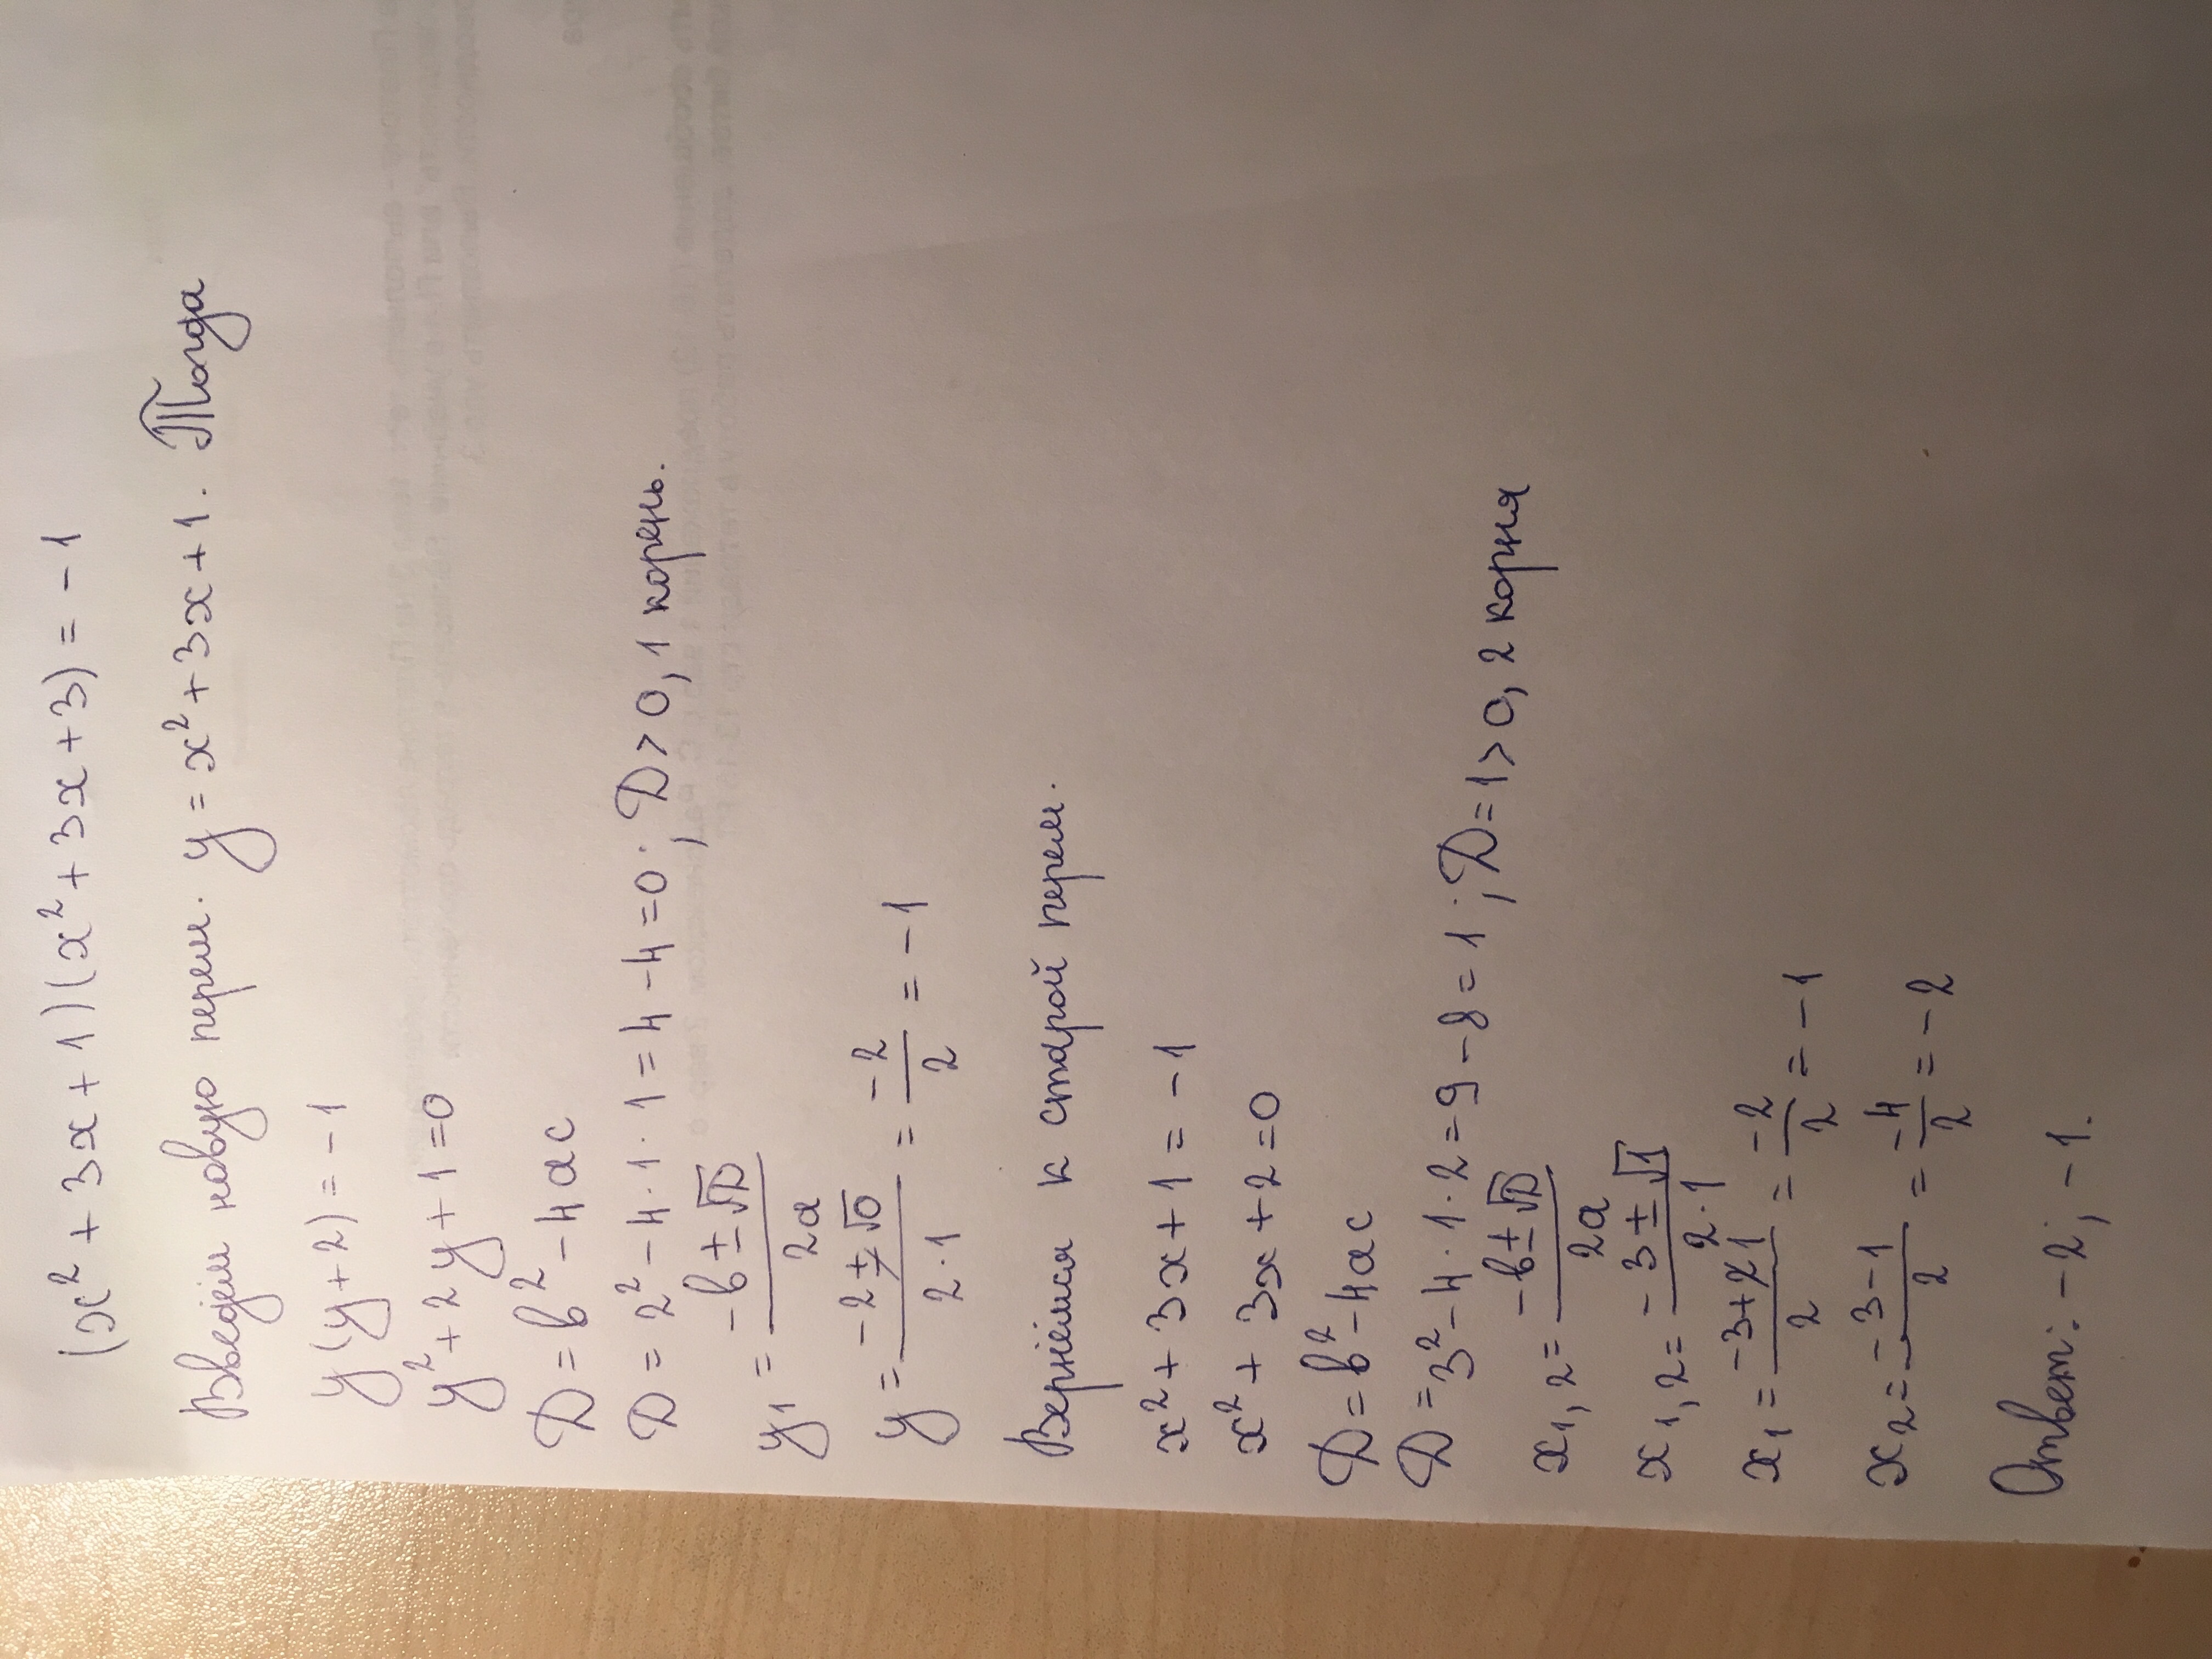 (x² + 3x + 1)(x² + 3x + 3) = -1
Введём новую перем. y = x² + 3x + 1. Тогда
y(y + 2) = -1
y² + 2y + 1 = 0
D = b² - 4ac
D = 2² - 4·1·1 = 4 - 4 = 0; D > 0, 1 корень.
y₁ = (-b ± √D)/2a
y = (-2 ± √0)/(2·1) = -2/2 = -1
Вернёмся к старой перем.
x² + 3x + 1 = -1
x² + 3x + 2 = 0
D = b² - 4ac
D = 3² - 4·1·2 = 9 - 8 = 1; D = 1 > 0, 2 корня
x₁,₂ = (-b ± √D)/2a
x₁,₂ = (-3 ± √1)/(2·1)
x₁ = (-3 + 1)/2 = -2/2 = -1
x₂ = (-3 - 1)/2 = -4/2 = -2
Ответ: -2; -1.